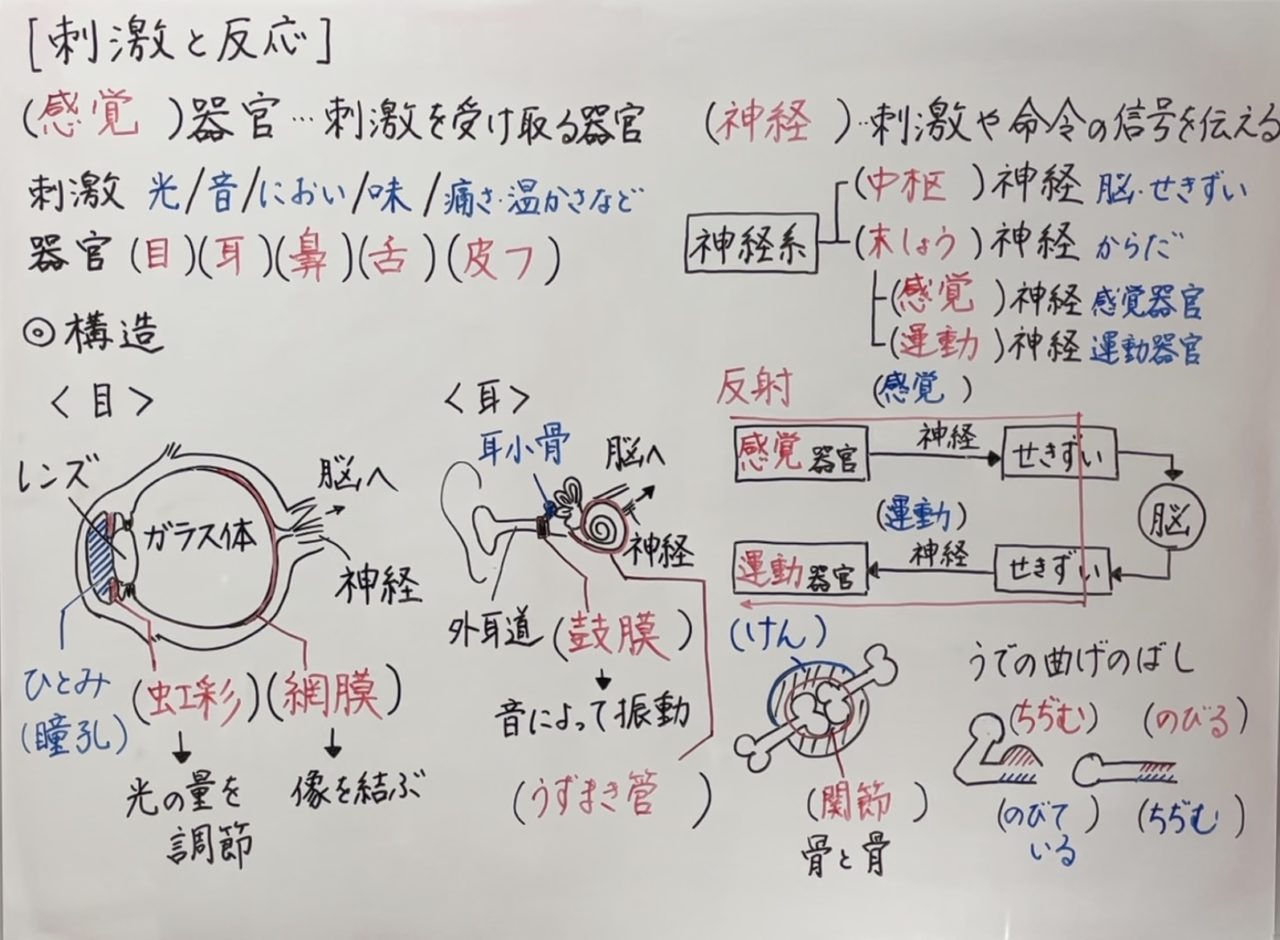 [刺激と反応]
(感覚)器官…刺激を受け取る器官
刺激 光/音/におい/味/痛さ・温かさなど
器官(目)(耳)(鼻)(舌)(皮フ)
◎構造
<目>
レンズ
ガラス体
脳へ
神経
ひとみ
(瞳孔)
(虹彩)
光の量を
調節
(網膜)
像を結ぶ
<耳>
耳小骨
脳へ
神経
外耳道
(鼓膜)
音によって振動
(うずまき管)
(神経)…刺激や命令の信号を伝える
神経系
(中枢)神経 脳・せきずい
(末しょう)神経 からだ
(感覚)神経 感覚器官
(運動)神経 運動器官
反射
(感覚)
感覚器官
神経
せきずい
脳
(運動)
運動器官
神経
せきずい
(けん)
(関節)
骨と骨
うでの曲げのばし
(ちぢむ)
(のびる)
(のびて
いる)
(ちぢむ)